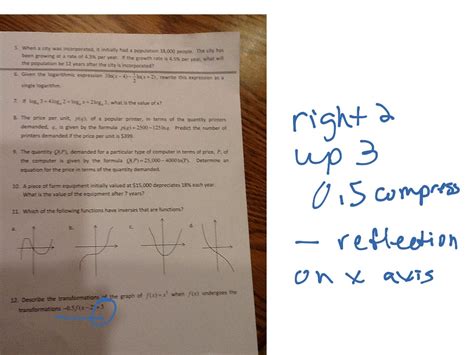 5. When a city was incorporated, it initially had a population 18,000 people. The city has
been growing at a rate of 4.5% per year. If the growth rate is 4.5% per year, what will
the population be 12 years after the city is incorporated?
6. Given the logarithmic expression rewrite this expression as a
single logarithm.
7. If what is the value of x?
8. The price per unit, p(q), of a popular printer, in terms of the quantity printers
demanded, q, is given by the formula Predict the number of
printers demanded if the price per unit is $399.
9. The quantity demanded for a particular type of computer in terms of price, P, of
the computer is given by the formula Determine an
equation for the price in terms of the quantity demanded.
10. A piece of farm equipment initially valued at $15,000 depreciates 18% each year.
What is the value of the equipment after 7 years?
11. Which of the following functions have inverses that are functions?
a. b. c. d.
12. Describe the transformations of the graph of when f(x) undergoes the
transformations
right 2
up 3
0.5 compress
— reflection
on x axis